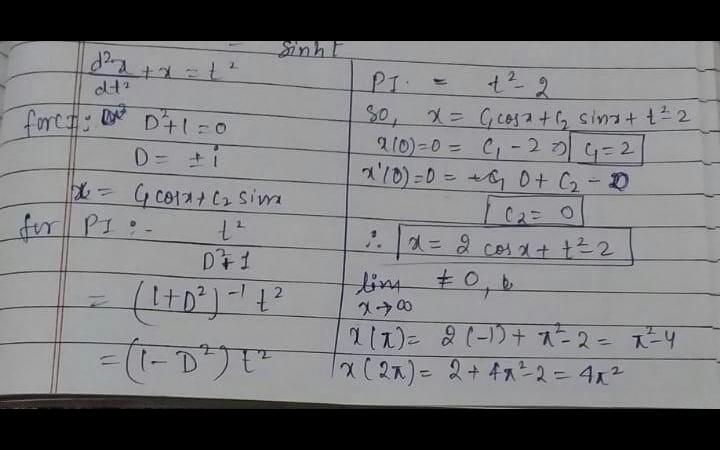 sinht
d²x/dt² + x = t²
for CF: D²+1=0
D = ±i
x = C₁cosx + C₂ sinx
for PI :- t²/D²+1
= (1+D²)⁻¹ t²
= (1-D²) t²
PI. = t²-2
so, x = C₁cosx + C₂ sinx + t²-2
x(0)=0 = C₁-2 ⇒ C₁=2
x'(0)=0 = -C₁ 0 + C₂ - 0
C₂ = 0
∴ x = 2 cosx + t²-2
lim x→∞ ≠ 0,
x(π) = 2(-1) + π²-2 = π²-4
x(2π) = 2 + 4π²-2 = 4π²